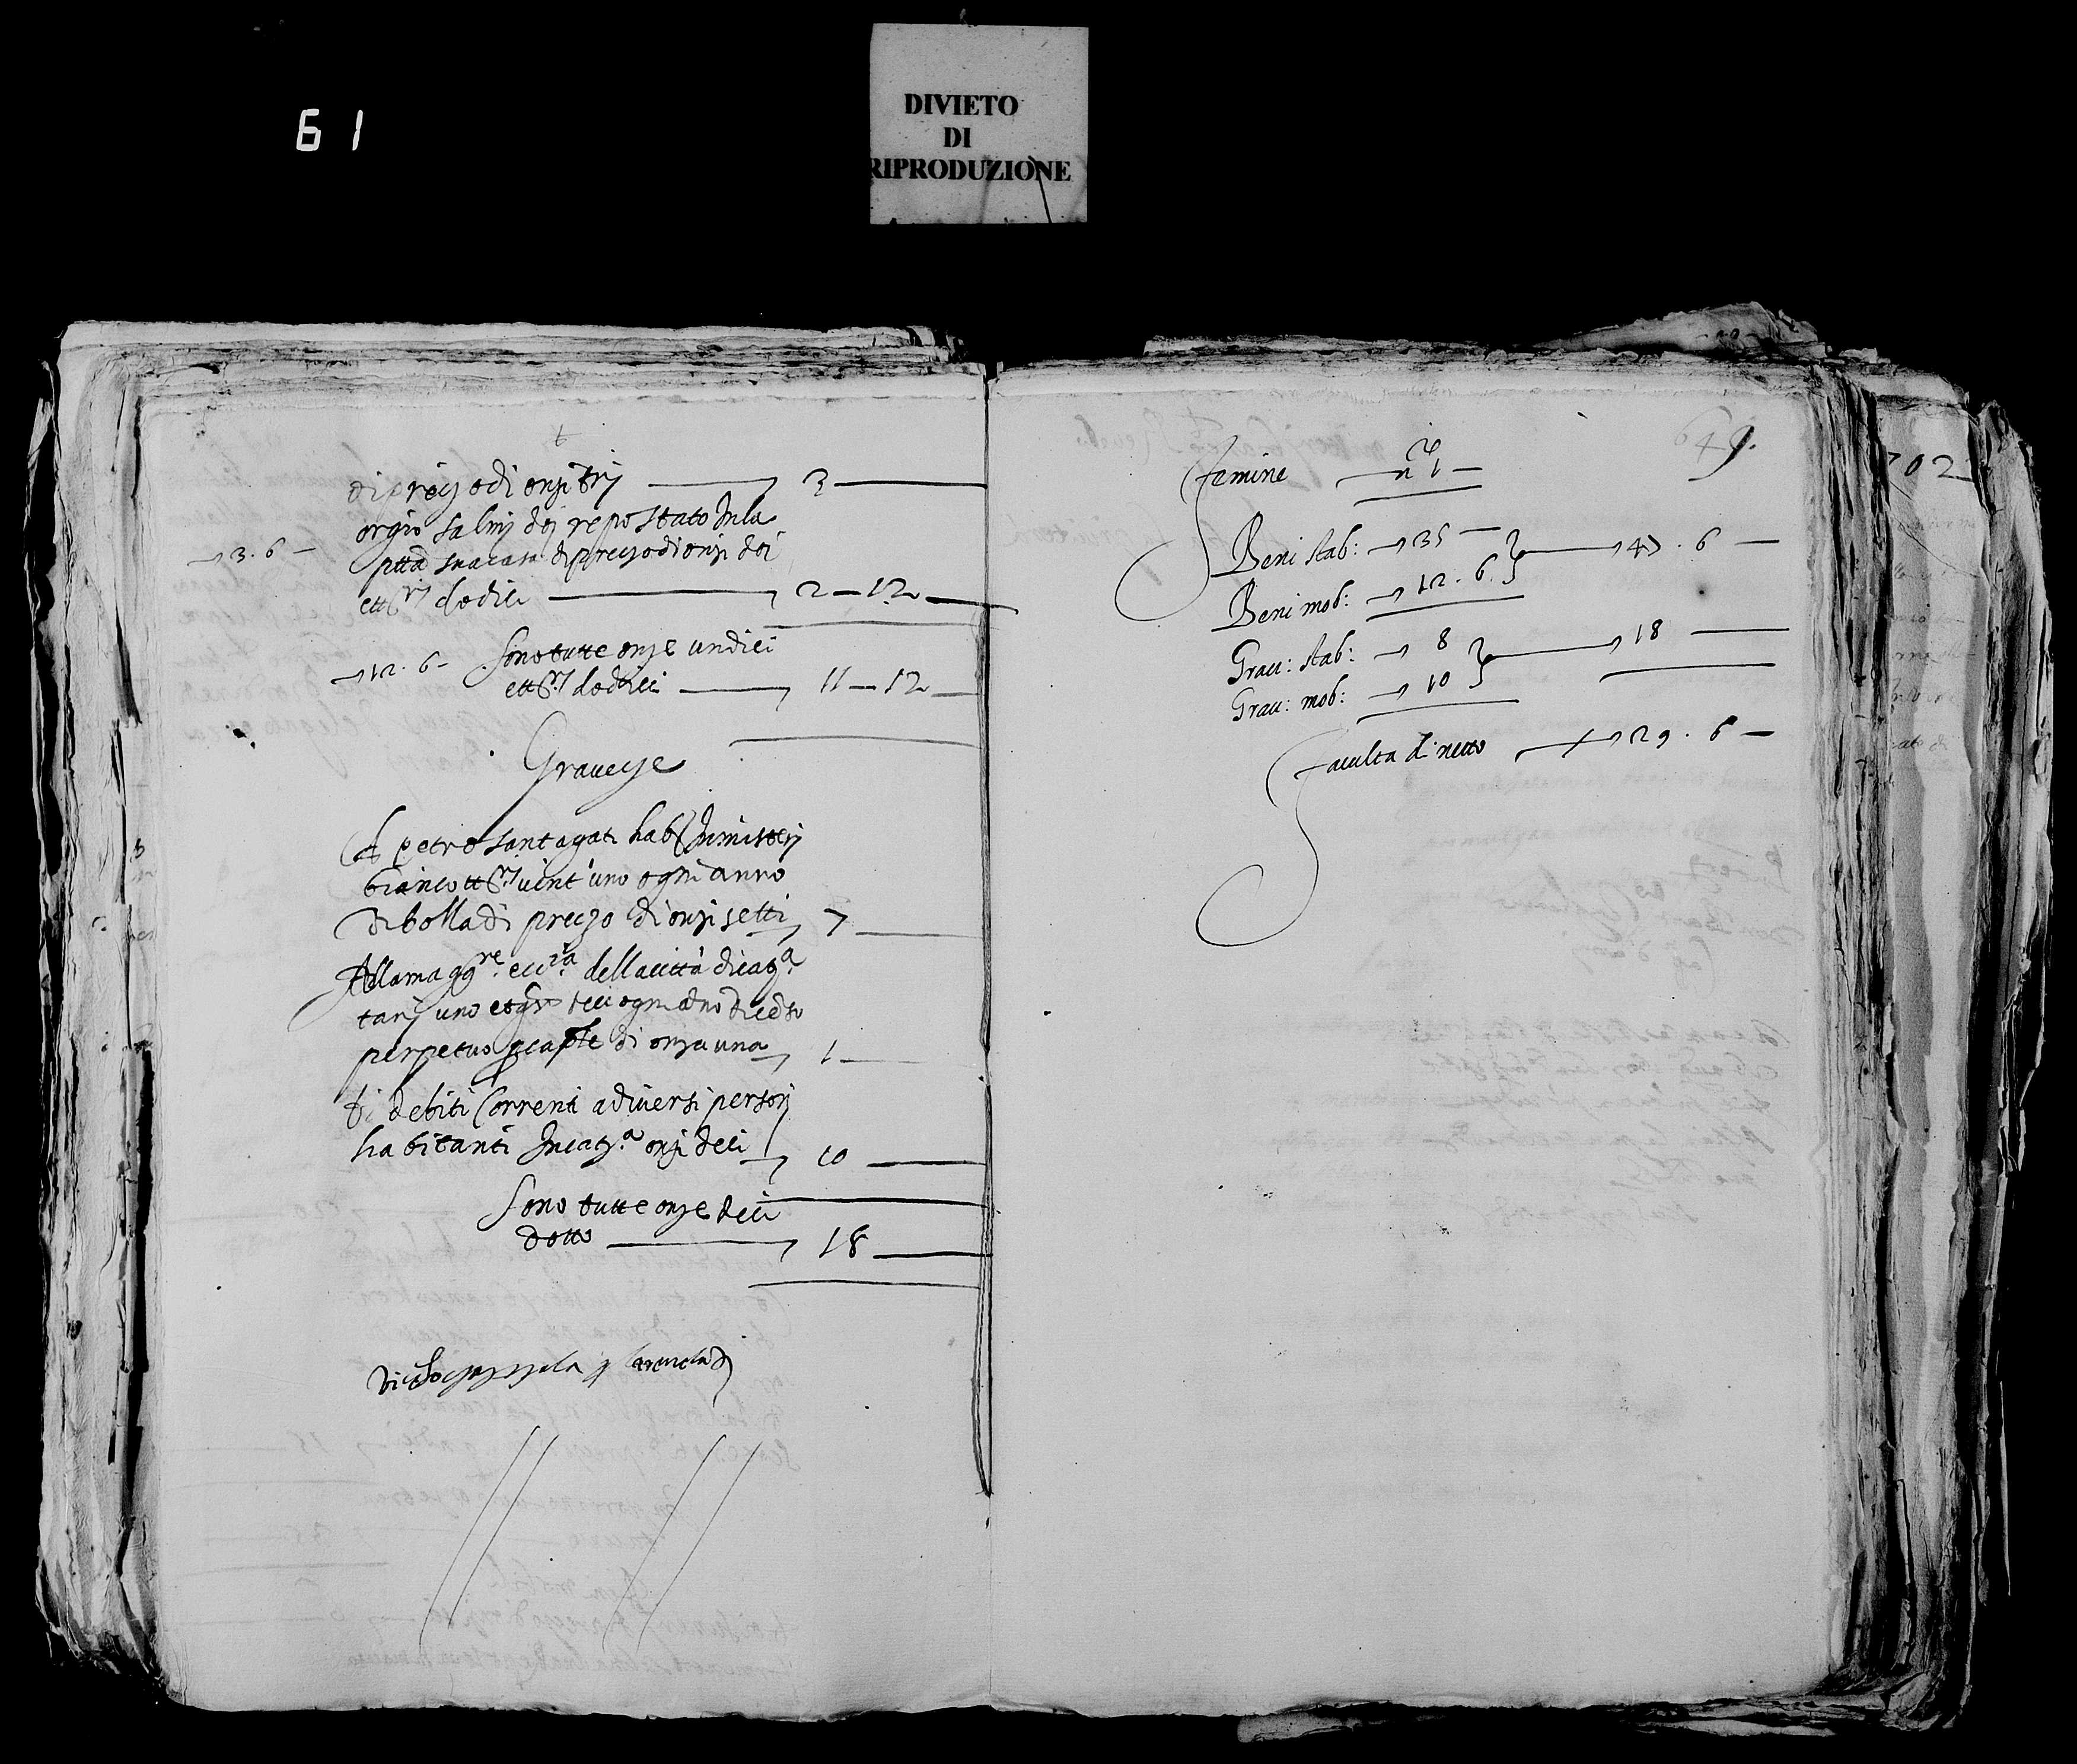 61
DIVIETO
DI
RIPRODUZIONE
di prezo di onzi trij 3
orgio salmi doi repostato In la
3. 6
ptta sua casa di prezo di onzi doi
ett.rj dodici 2 - 12
sono tutte onze undici
12. 6
ett.rj dodici 11 - 12
Graveze
A petro santagati hab. In misteri
bianco tt.rj vint'uno ogni anno
di bolla di prezo di onzi setti 7
Alla magg.re ecc.ia della città di cat.a
tarj uno et gr. deci ogni anno di censo
perpetuo p. caple di onza una 1
di debiti Correnti a diversi personi
habitanti In cat.a onzi deci 10
sono tutte onze deci
dotto 18
649.
702
femine n.1
Beni stab: 35
47. 6
Beni mob: 12. 6
Grav: stab: 8
18
Grav: mob: 10
faculta di netto 29. 6